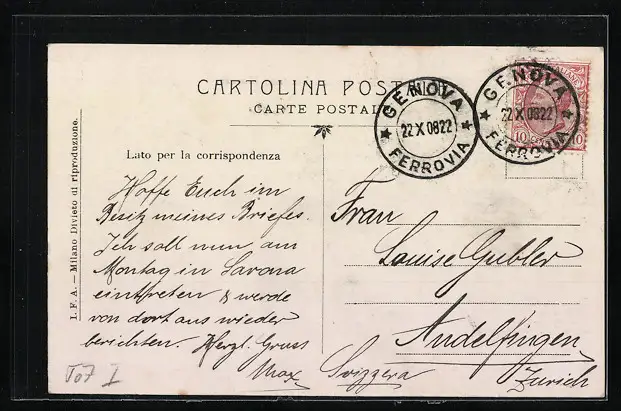 CARTOLINA POSTA
CARTE POSTAL
GENOVA
22 X 08 22
FERROVIA
GENOVA
22 X 08 22
FERROVIA
10 10
Lato per la corrispondenza
Hoffe Euch im
Besitz meines Briefes.
Ich soll nun am
Montag in Savona
eintreten & werde
von dort aus wieder
berichten. Herzl. Gruss
Max
Frau
Louise Gubler
Andelfingen
Svizzera Zürich
I. F. A. — Milano Divieto di riproduzione.
T07 I